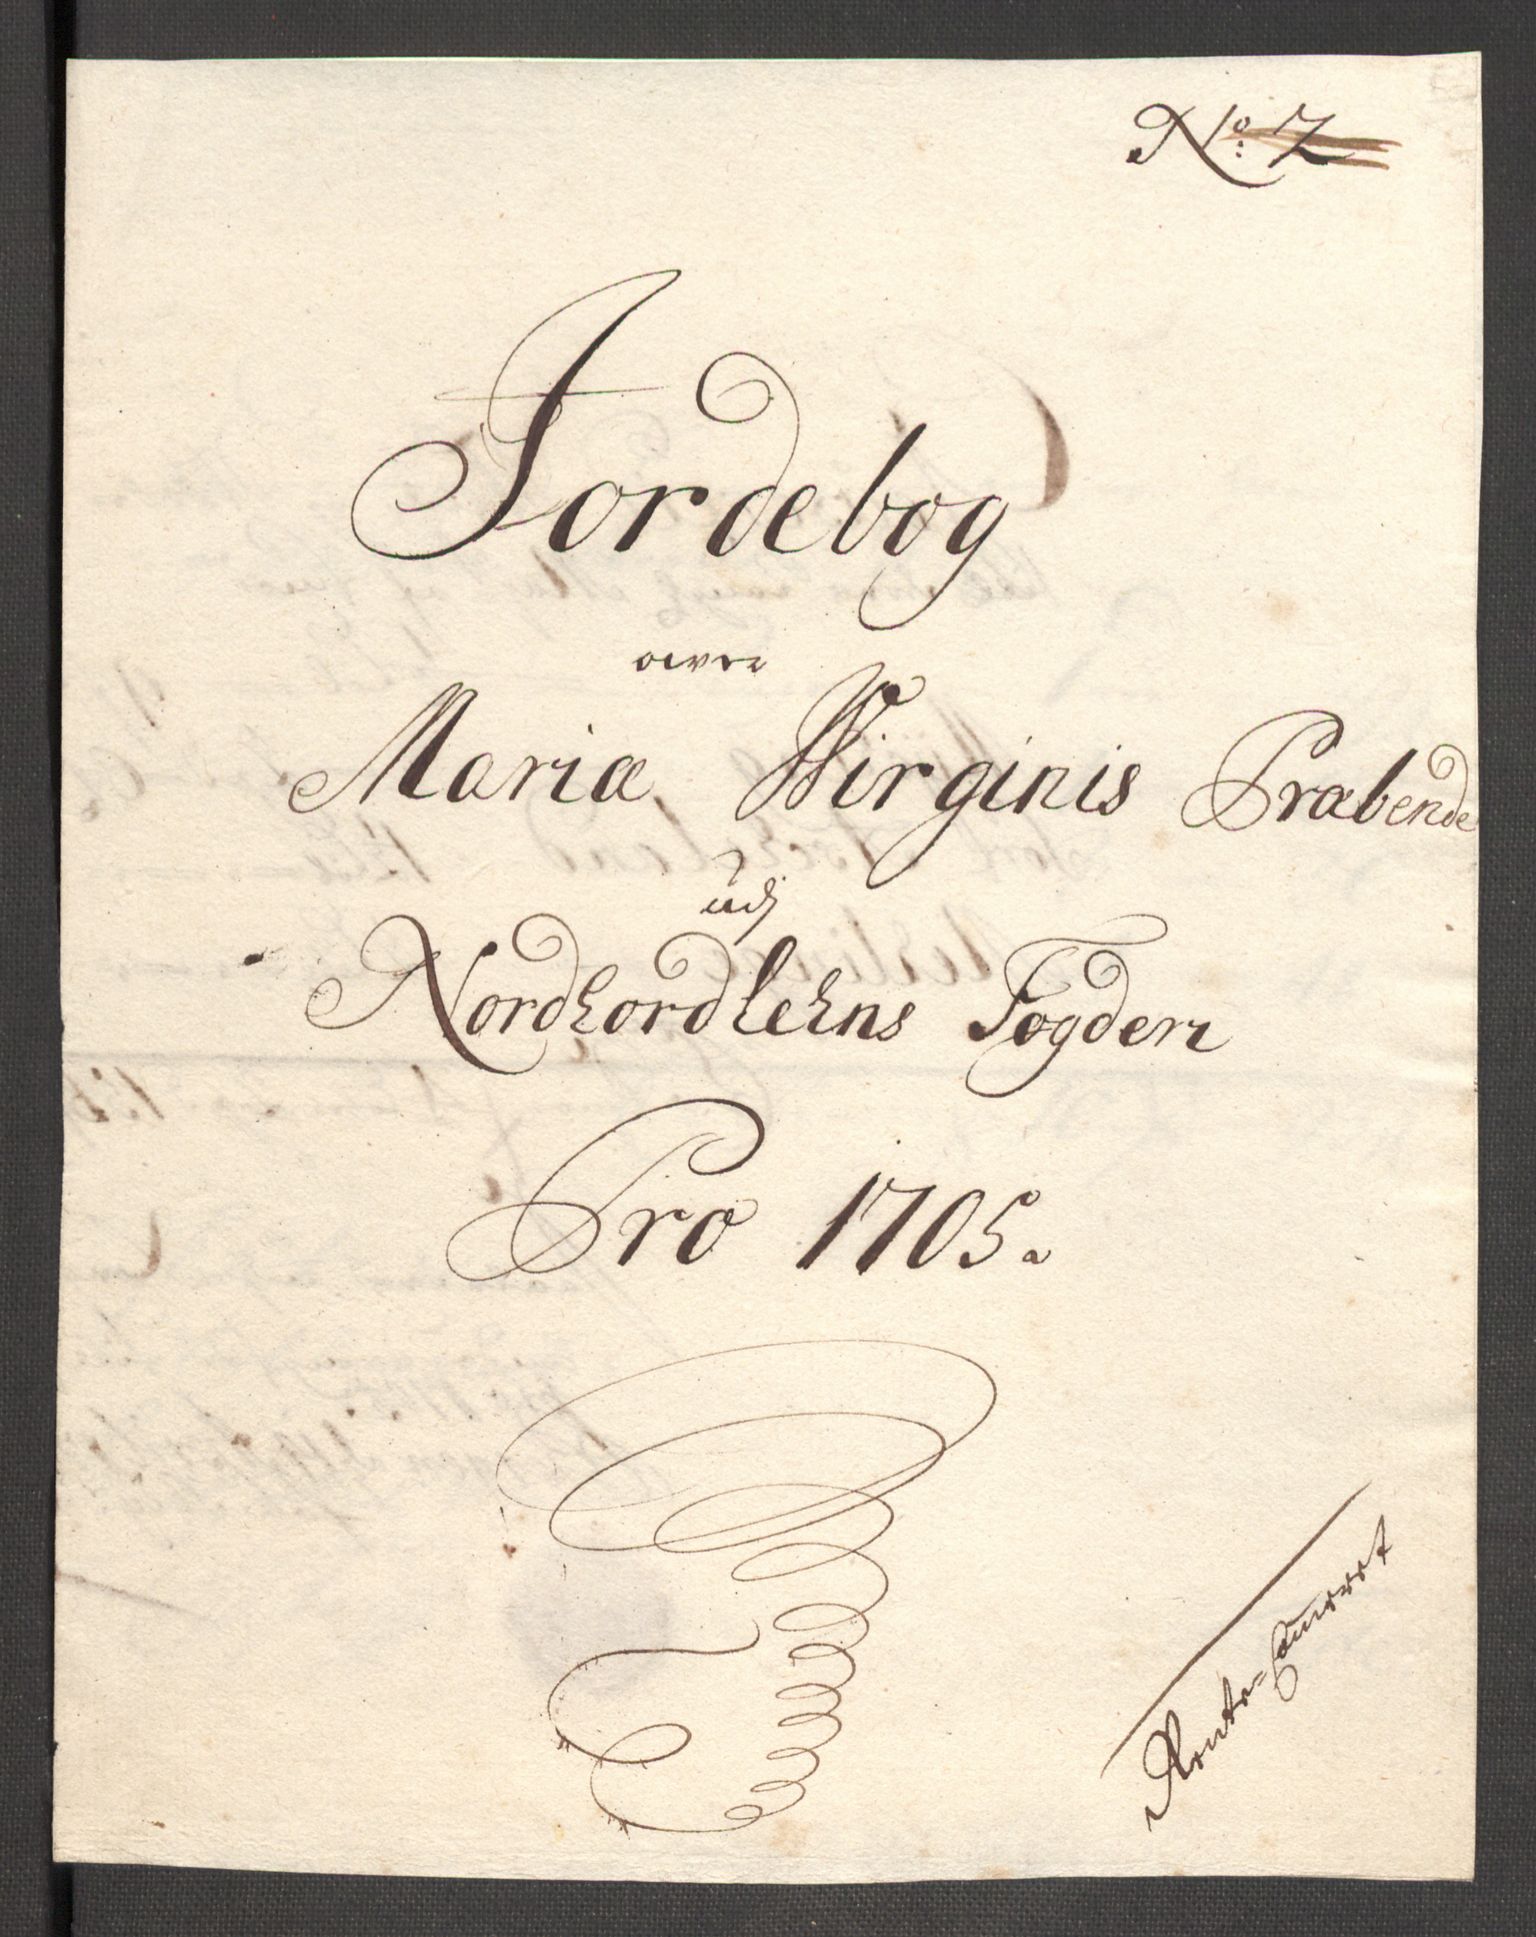 No: 2
Jordebog
over
Mariæ Virginis Præbende
udj
Nordhordlehns Fogderi
Pro 1705.
Rente-Cameret